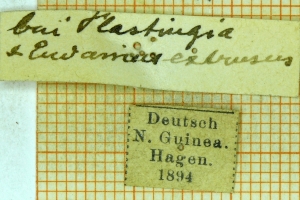 bui Plastingia
& Eudamus extrusus
Deutsch
N. Guinea.
Hagen.
1894